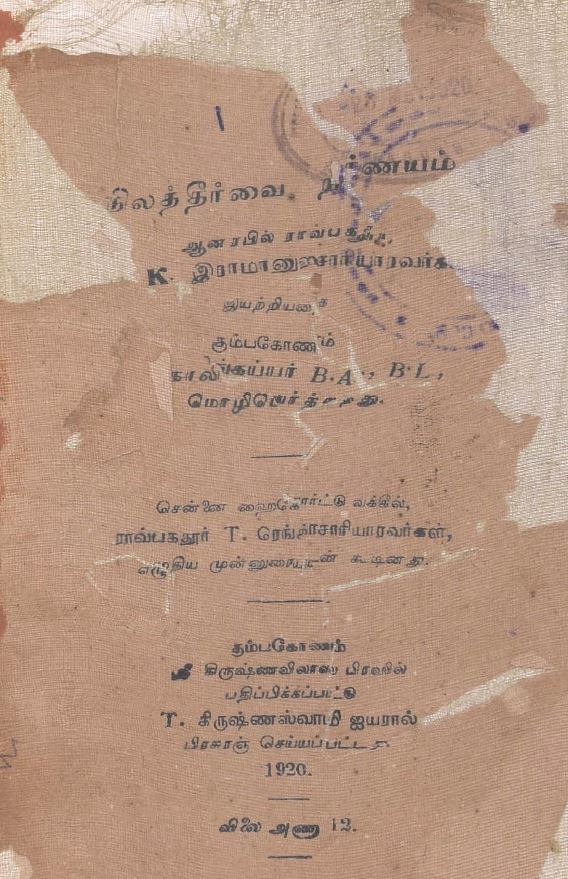 நிலத்தீர்வை நிர்ணயம்
ஆனரபில் ராவ்பகதூர்,
K. இராமானுஜாசாரியாரவர்க
இயற்றியதை
கும்பகோணம்
காலிங்கய்யர் B.A., B.L,
மொழிபெயர்த்தது.
சென்னை ஹைகோர்ட்டு வக்கீல்,
ராவ்பகதூர் T. ரெங்காசாரியாரவர்கள்,
எழுதிய முன்னுரையுடன் கூடினது.
கும்பகோணம்
ஸ்ரீ கிருஷ்ணவிலாஸ பிரஸில்
பதிப்பிக்கப்பட்டு
T. கிருஷ்ணஸ்வாமி ஐயரால்
பிரசுரஞ் செய்யப்பட்டது
1920.
விலை அணா 12.